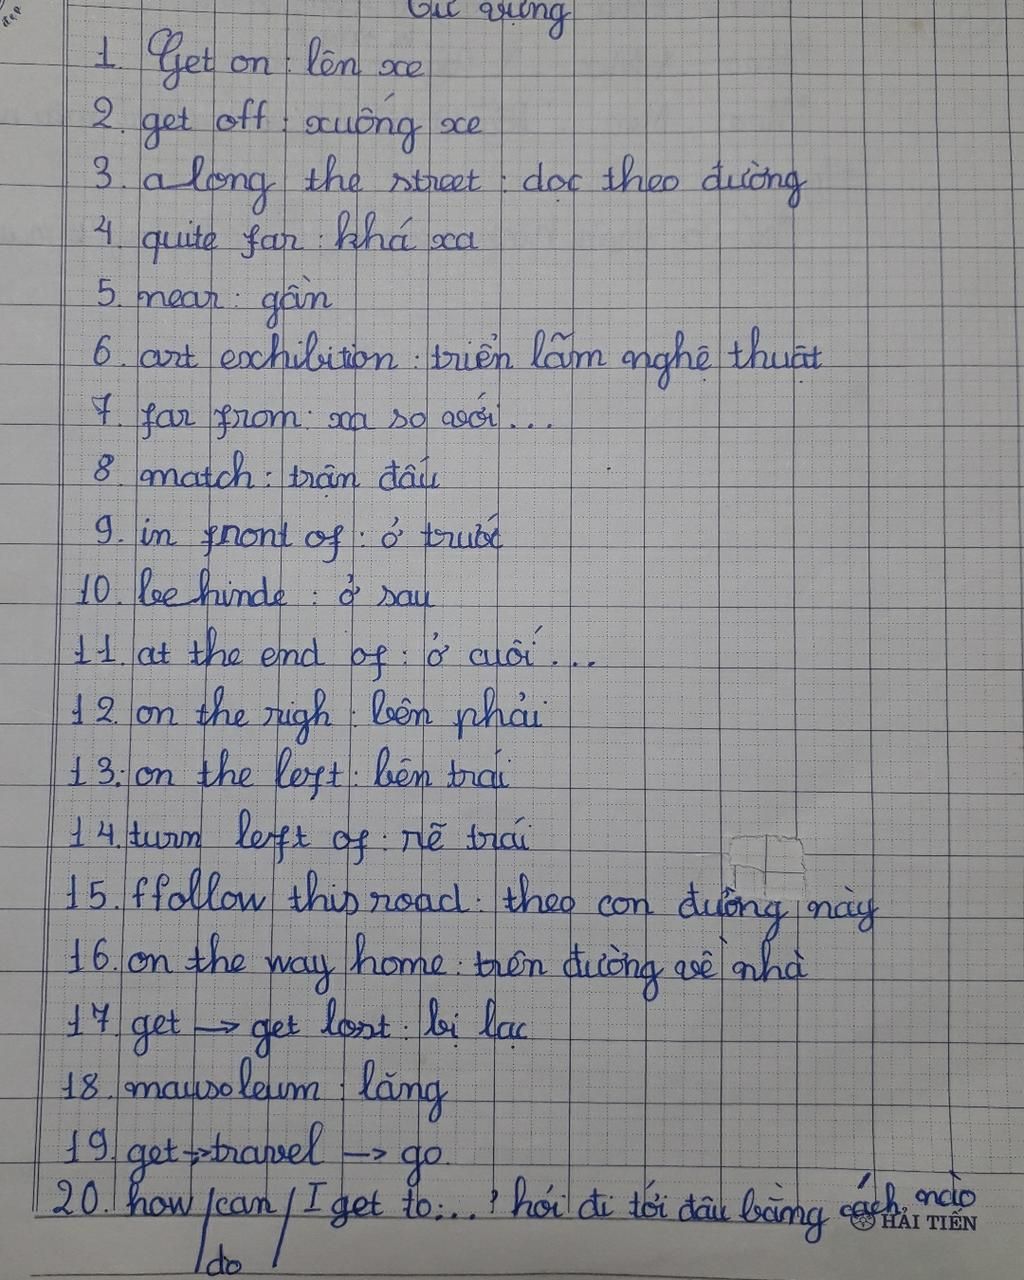 từ vựng
1. Get on: lên xe
2. get off: xuống xe
3. along the street: dọc theo đường
4. quite far: khá xa
5. near: gần
6. art exchibition: triển lãm nghệ thuật
7. far from: xa so với...
8. match: trận đấu
9. in front of: ở trước
10. beehinde: ở sau
11. at the end of: ở cuối...
12. on the righ: bên phải
13. on the left: bên trái
14. turn left of: rẽ trái
15. ffollow this road: theo con đường này
16. on the way home: trên đường về nhà
17. get → get lost: bị lạc
18. mausoleum: lăng
19. get → travel → go
20. how /can/ I get to...? hỏi đi tới đâu bằng cách nào
HẢI TIẾN
/do /